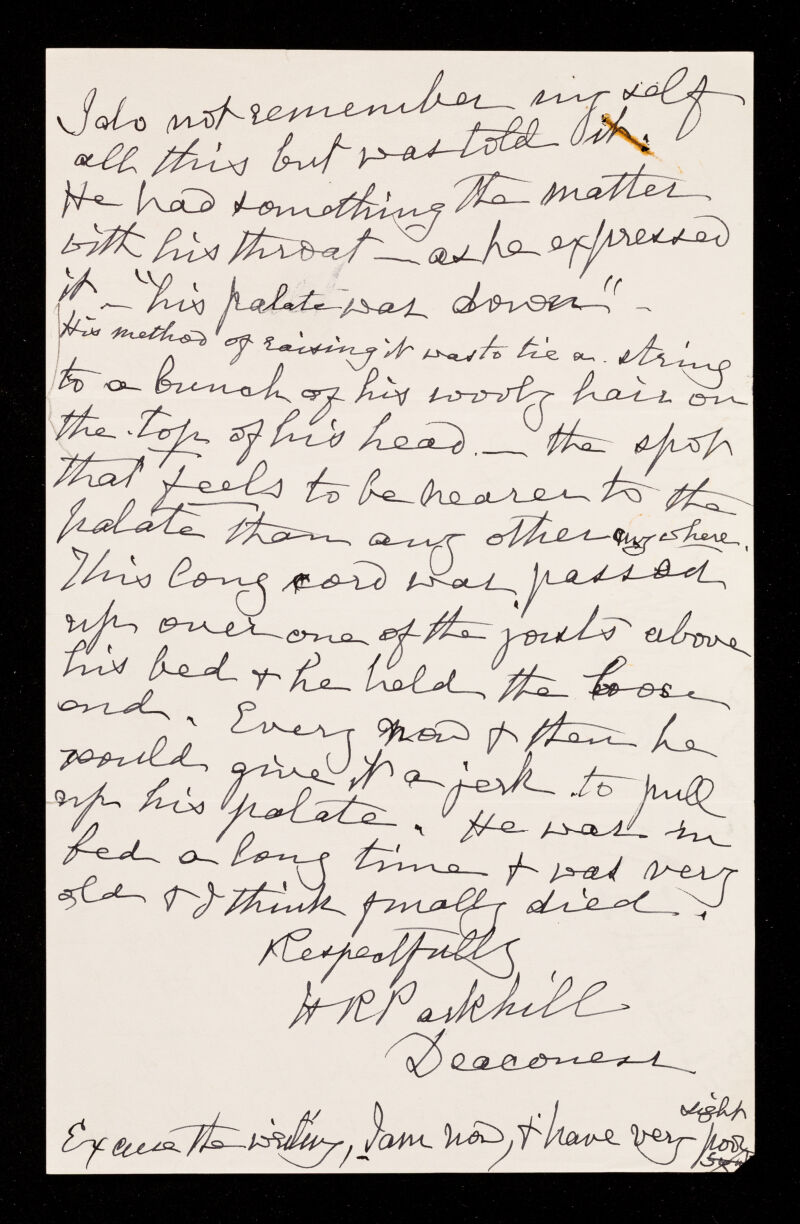 I do not remember myself
all this but was told it.
He had something the matter
with his throat — as he expressed
it — "his palate was down" —
His method of raising it was to tie a string
to a bunch of his wooly hair on
the top of his head — the spot
that feels to be nearer to the
palate than any other any where.
This long cord was passed
up over one of the joists above
his bed & he held the loose
end. Every now & then he
would give it a jerk to pull
up his palate. He was in
bed a long time & was very
old & I think finally died.
Respectfully
H R Parkhill
Deaconess
sight
Excuse the writing, I am now, & have very poor